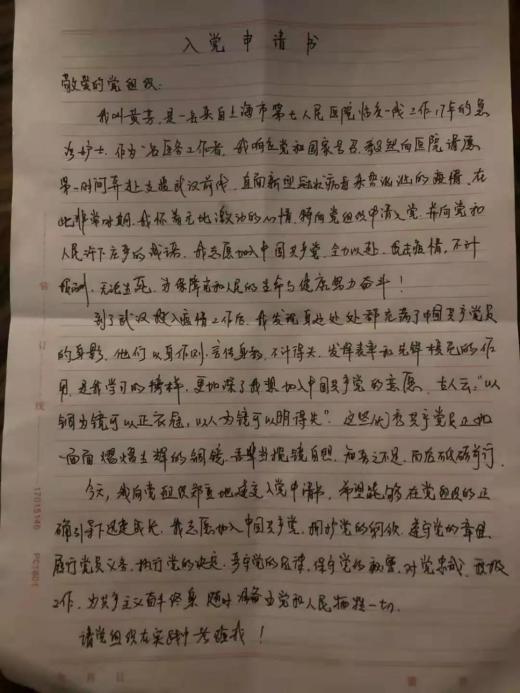 入党申请书
敬爱的党组织:
我叫黄芳,是一名来自上海市第七人民医院临床一线工作17年的急
诊护士.作为一名医务工作者,我响应党和国家号召,毅然向医院请愿
第一时间奔赴支援武汉前线,直面新型冠状病毒来势汹汹的疫情.在
此非常时期,我怀着无比激动的心情,特向党组织申请入党,并向党和
人民许下庄重的承诺:我志愿加入中国共产党,全力以赴,抗击疫情,不计
报酬,无论生死,为保障党和人民的生命与健康努力奋斗!
到了武汉投入疫情工作后,我发现身边处处都充满了中国共产党员
的身影.他们以身作则,言传身教,不计得失,发挥表率和先锋模范的作
用,是我学习的榜样,更加深了我想加入中国共产党的意愿.古人云:"以
铜为镜可以正衣冠,以人为镜可以明得失".这些优秀共产党员正如
一面面熠熠生辉的铜镜,吾辈当揽镜自照,知吾之不足,而后砥砺前行.
今天,我向党组织郑重地递交入党申请书,希望能够在党组织的正
确引导下迅速成长.我志愿加入中国共产党,拥护党的纲领,遵守党的章程,
履行党员义务,执行党的决定,严守党的纪律,保守党的秘密,对党忠诚,积极
工作,为共产主义奋斗终身,随时准备为党和人民牺牲一切.
请党组织在实践中考验我!
装
订
线
17015146
PC1601